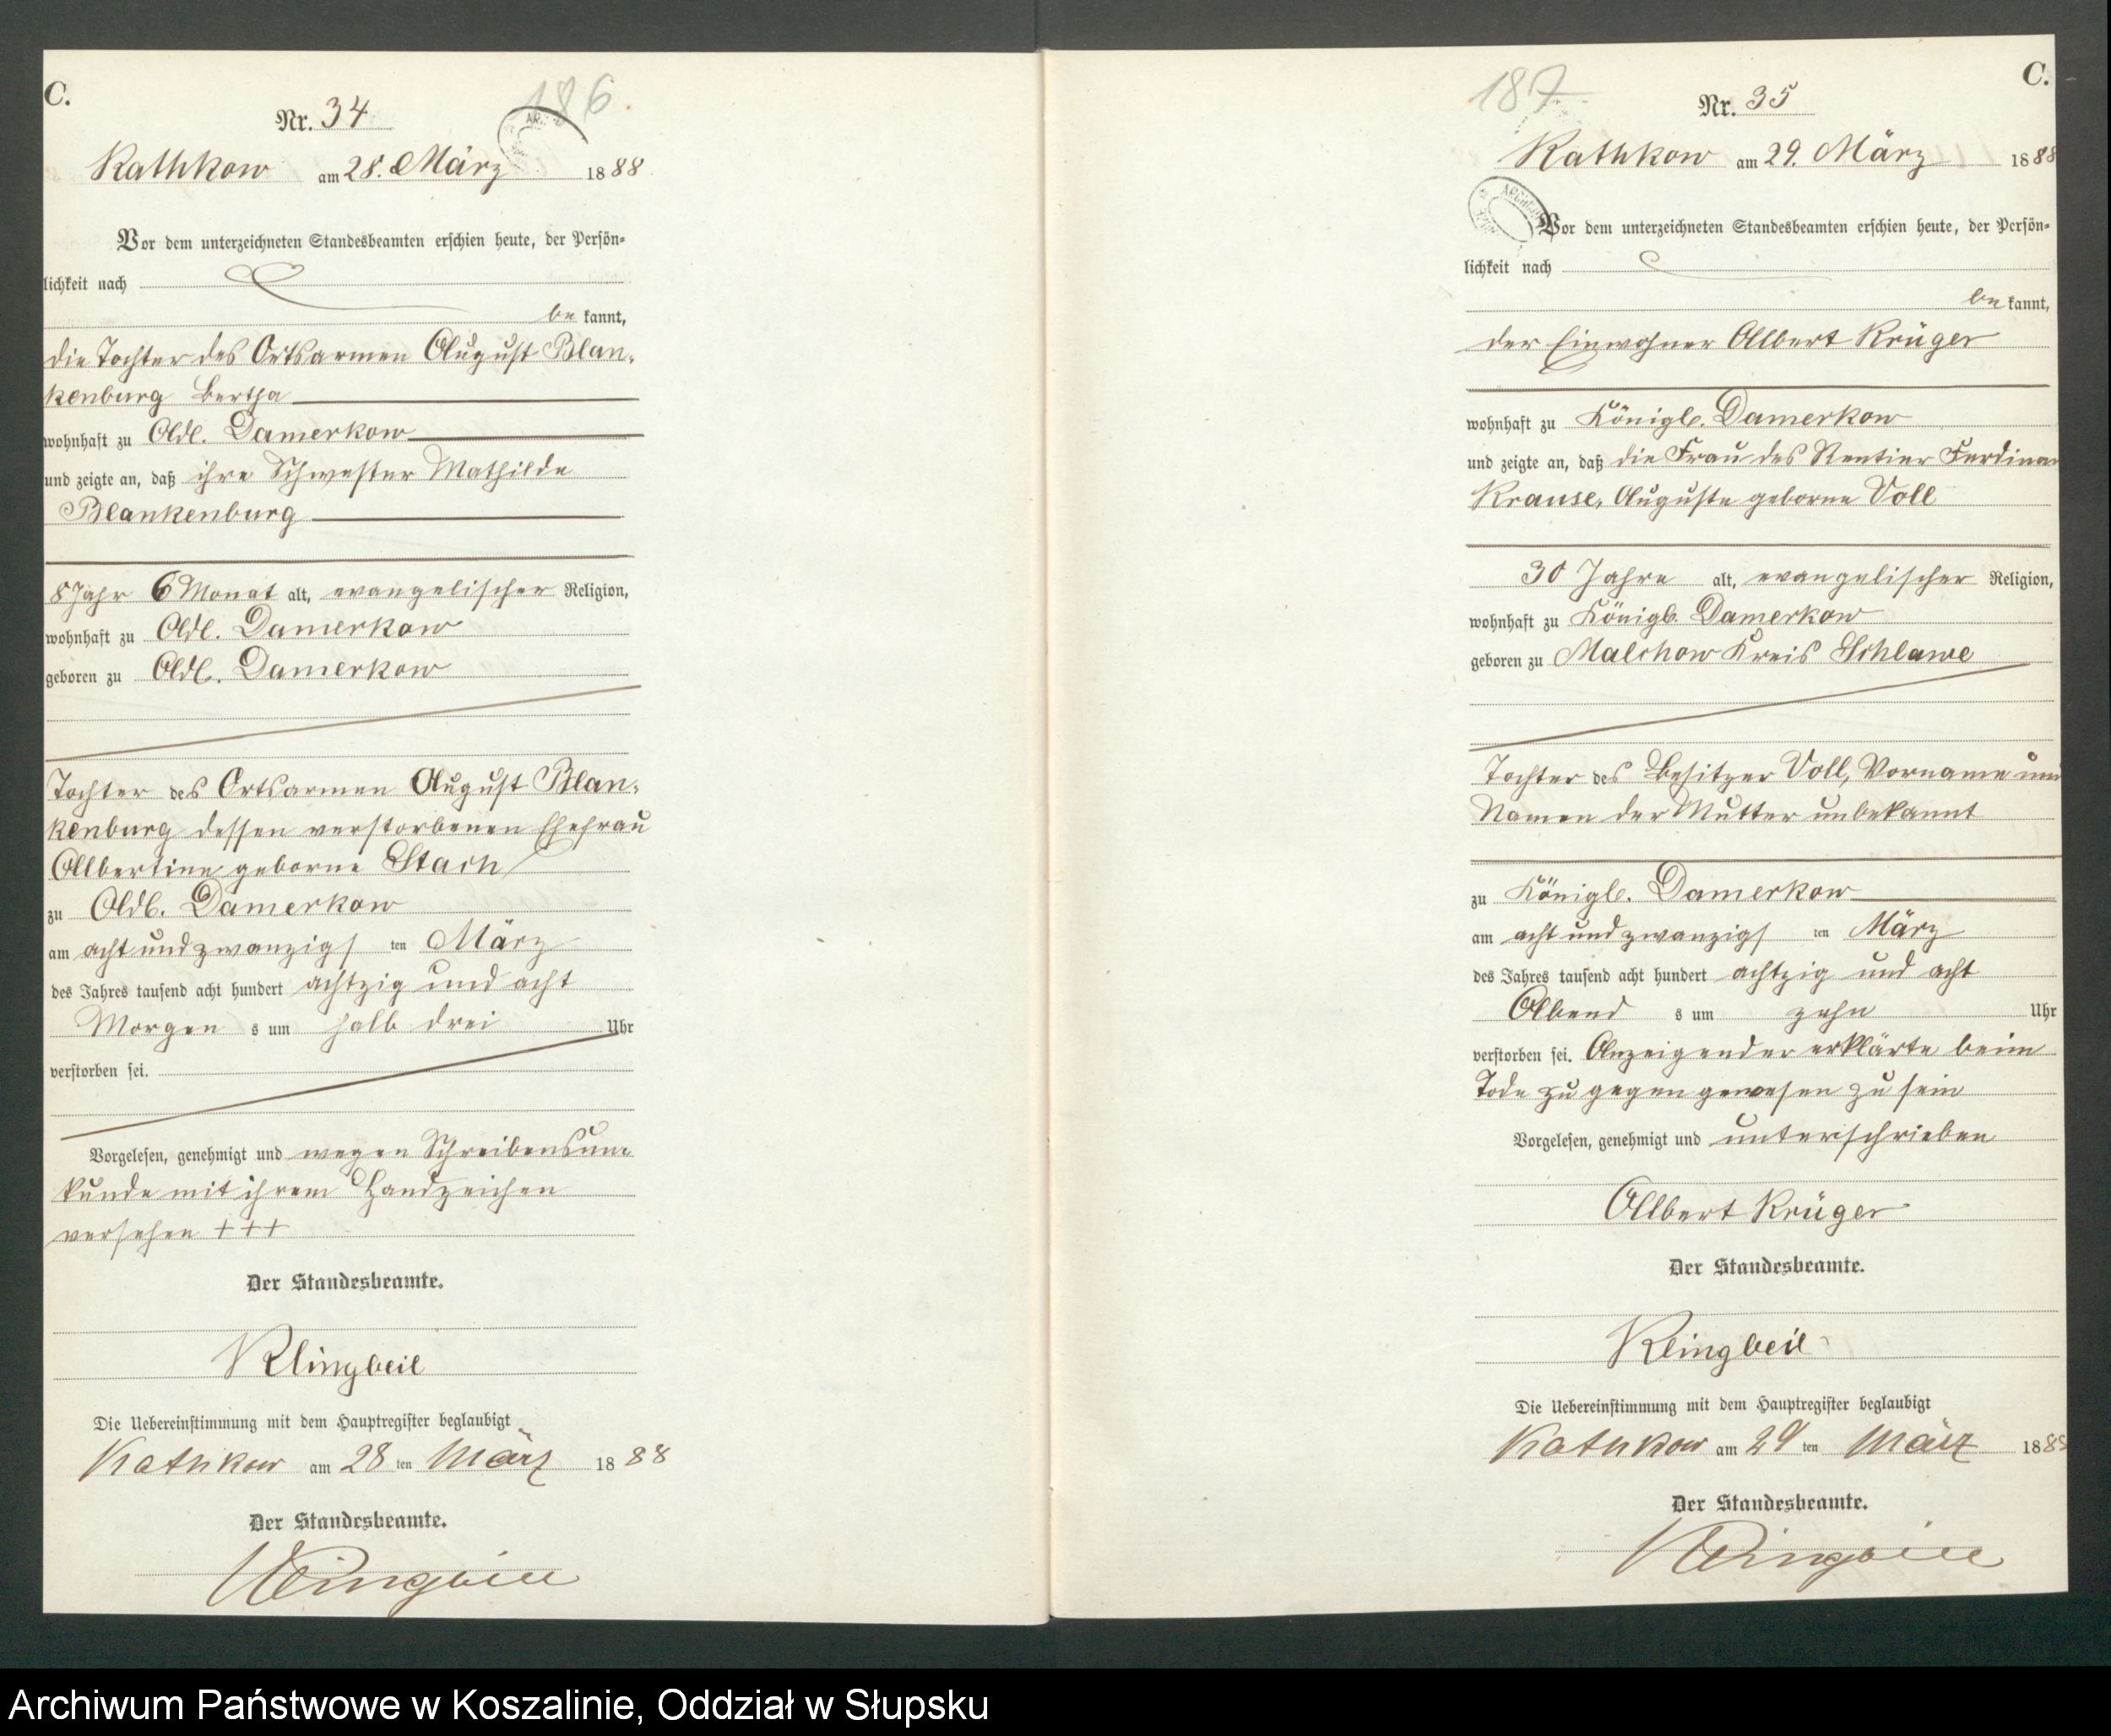 C.
186.
Nr. 34
Kathkow am 28. März 1888
Vor dem unterzeichneten Standesbeamten erschien heute, der Persön=
lichkeit nach
be kannt,
die Tochter des Ortsarmen August Blan=
kenburg Bertha
wohnhaft zu Adl. Damerkow
und zeigte an, daß ihre Schwester Mathilde
Blankenburg
8 Jahr 6 Monat alt, evangelischer Religion,
wohnhaft zu Adl. Damerkow
geboren zu Adl. Damerkow
Tochter des Ortsarmen August Blan=
kenburg dessen verstorbenen Ehefrau
Albertine geborne Stach
zu Adl. Damerkow
am acht und zwanzigs ten März
des Jahres tausend acht hundert achtzig und acht
Morgen s um halb drei Uhr
verstorben sei.
Vorgelesen, genehmigt und wegen Schreibensun=
kunde mit ihrem Handzeichen
versehen +++
Der Standesbeamte.
Klingbeil
Die Uebereinstimmung mit dem Hauptregister beglaubigt
Kathkow am 28 ten März 1888
Der Standesbeamte.
Klingbeil
187
C.
Nr. 35
Kathkow am 29. März 1888
Vor dem unterzeichneten Standesbeamten erschien heute, der Persön=
lichkeit nach
be kannt,
der Einwohner Albert Krüger
wohnhaft zu Königl. Damerkow
und zeigte an, daß die Frau des Rentier Ferdinan
Krause, Auguste geborne Voll
30 Jahre alt, evangelischer Religion,
wohnhaft zu Königl. Damerkow
geboren zu Malchow Kreis Schlawe
Tochter des Besitzer Voll, Vorname und
Namen der Mutter unbekannt
zu Königl. Damerkow
am acht und zwanzigs ten März
des Jahres tausend acht hundert achtzig und acht
Abend s um zehn Uhr
verstorben sei. Anzeigender erklärte beim
Tode zu gegen gewesen zu sein
Vorgelesen, genehmigt und unterschrieben
Albert Krüger
Der Standesbeamte.
Klingbeil
Die Uebereinstimmung mit dem Hauptregister beglaubigt
Kathkow am 29 ten März 1888
Der Standesbeamte.
Klingbeil
Archiwum Państwowe w Koszalinie, Oddział w Słupsku